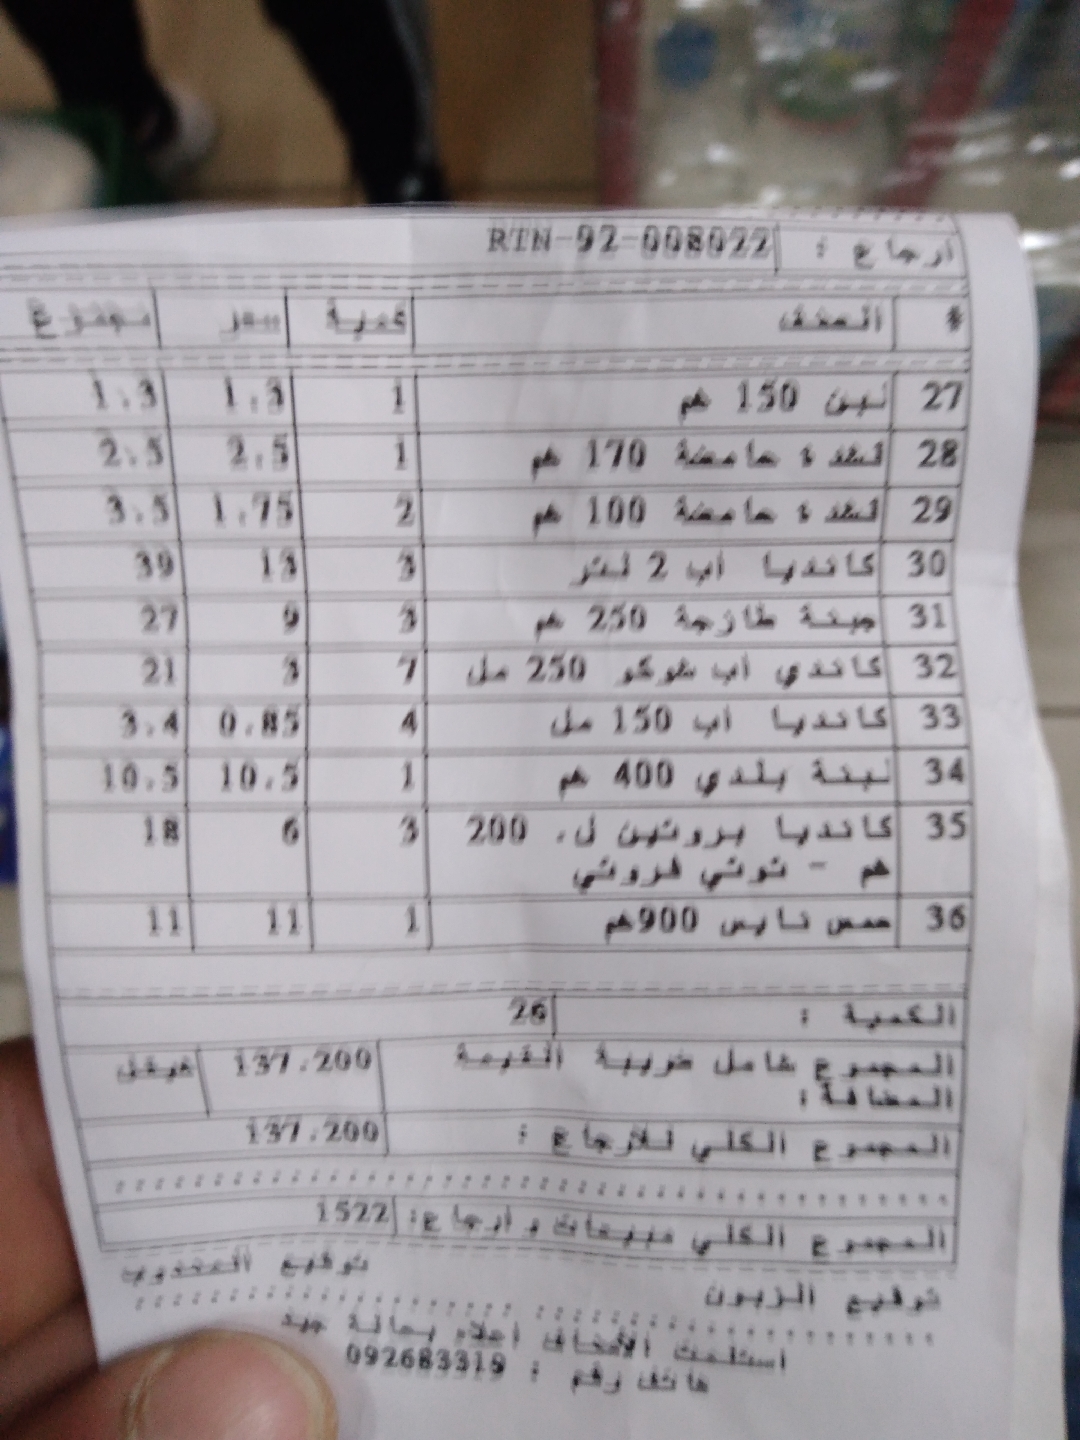 أرجاع : RTN-92-008022
# الصنف كمية سعر مجموع
27 لبن 150 غم 1 1.3 1.3
28 قشدة حامضة 170 غم 1 2.5 2.5
29 قشدة حامضة 100 غم 2 1.75 3.5
30 كانديا أب 2 لتر 3 13 39
31 جبنة طازجة 250 غم 3 9 27
32 كاندي أب شوكو 250 مل 7 3 21
33 كانديا أب 150 مل 4 0.85 3.4
34 لبنة بلدي 400 غم 1 10.5 10.5
35 كانديا بروتين ل. 200 3 6 18
غم - توتي فروتي
36 حمص تايس 900غم 1 11 11
الكمية : 26
المجموع شامل ضريبة القيمة 137.200 شيقل
المضافة:
المجموع الكلي للأرجاع : 137.200
المجموع الكلي مبيعات وأرجاع: 1522
توقيع الزبون توقيع المندوب
استلمت الأصناف أعلاه بحالة جيد
هاتف رقم : 092683319